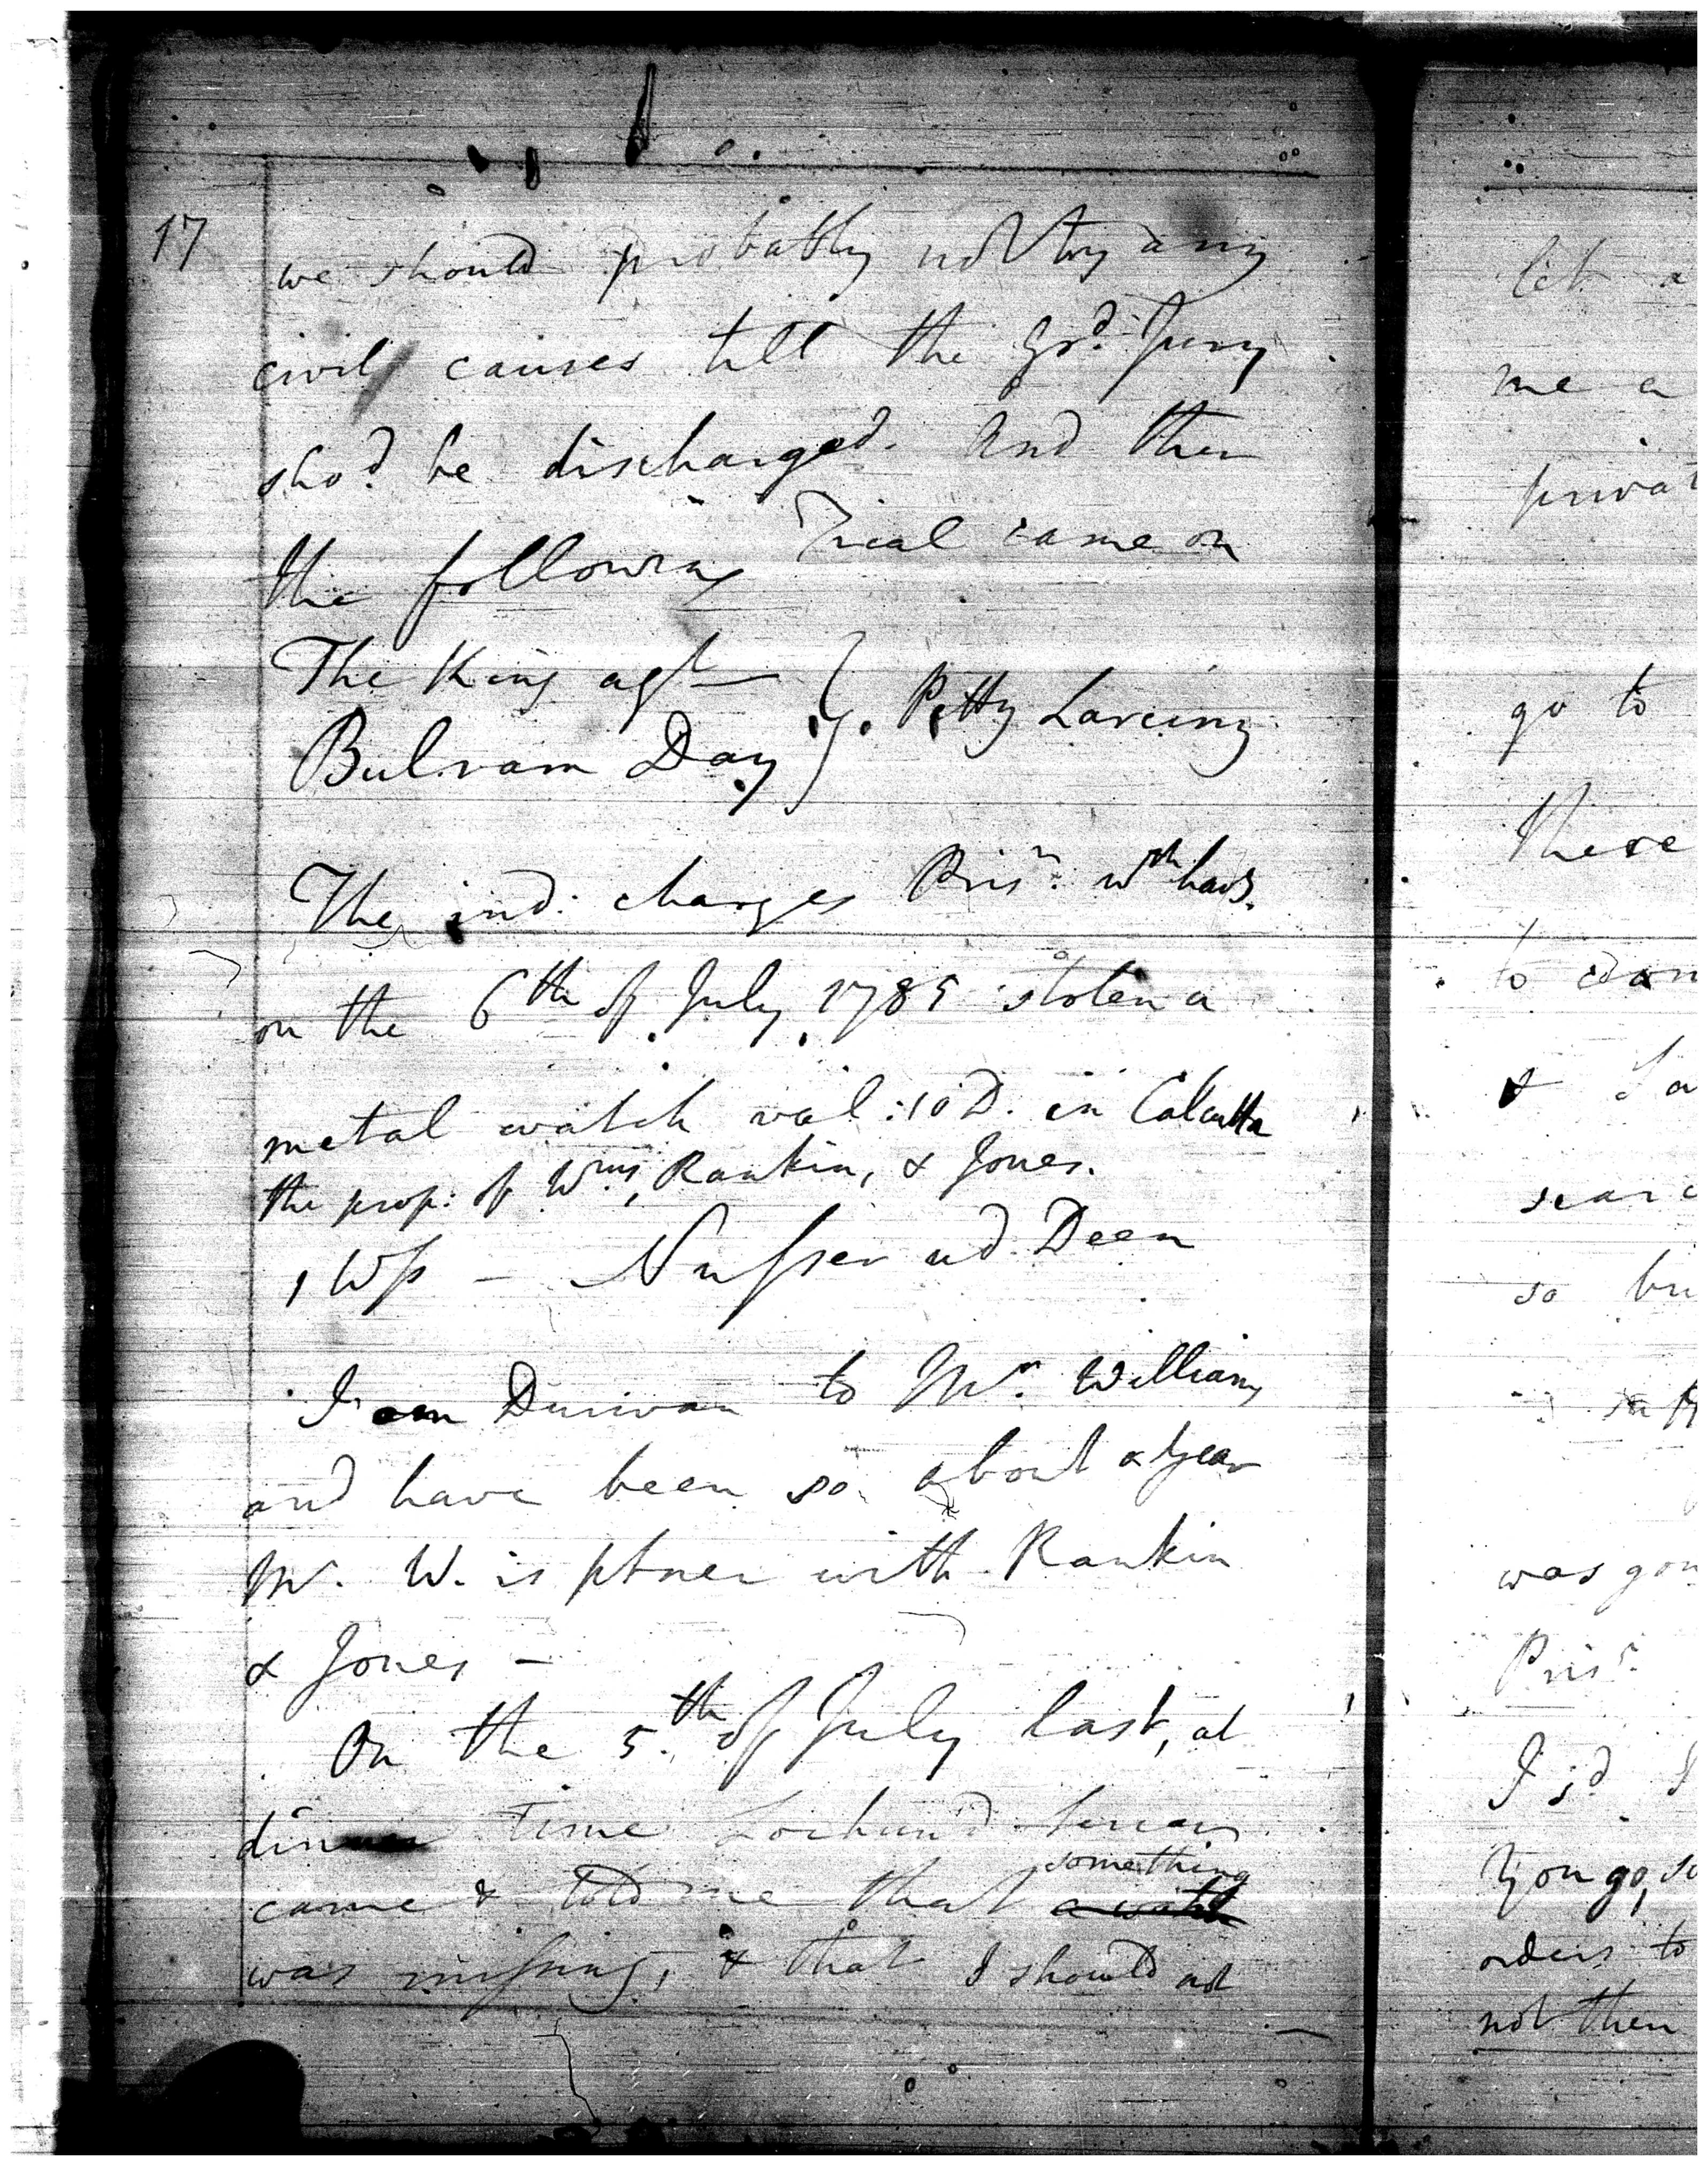 17
we should probably not try any
civil causes till the Grd. Jury
shod. be discharged. And then
the following Trial came on
The King agt
Bulram Day } Petty Larceny
The ind: charges Prisr. wth havg.
on the 6th of July 1785 stolen a
metal watch val: 10D. in Calcutta
the prop: of Wms, Rankin, & Jones.
1 Wss - Nusser ud Deen
I am Durwan to Mr. Williams
and have been so about a year
Mr. W. is ptner with Rankin
& Jones -
On the 5.th of July last, at
dinner time
something
came & told me that a watch
was missing, & that I should not
let a
me a
privat
go to
these
to
&
searc
so
was gon
Prisr.
I sd. I
you go, so
orders to
not then